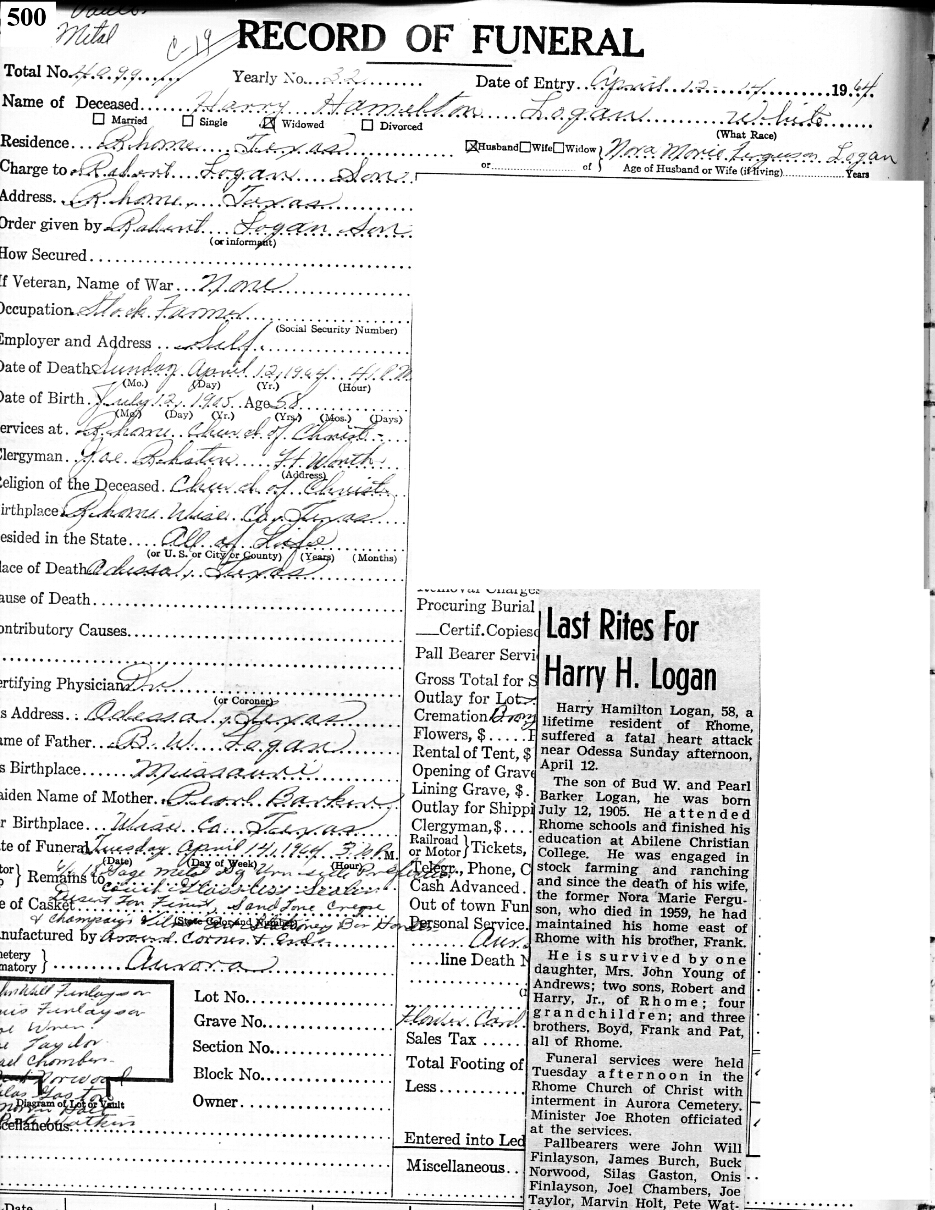 500
Metal
C-19
RECORD OF FUNERAL
Total No. 4099 Yearly No. 32 Date of Entry April 12-14 1964
Name of Deceased Harry Hamilton Logan White
Married Single Widowed Divorced (What Race)
Residence Rhome Texas Husband Wife Widow Nora Marie Ferguson Logan
or of Age of Husband or Wife (if living) Years
Charge to Robert Logan Son
Address. Rhome, Texas
Order given by Robert Logan Son
(or informant)
How Secured
If Veteran, Name of War None
Occupation Stock Farmer
(Social Security Number)
Employer and Address Self
Date of Death Sunday April 12, 1964
(Mo.) (Day) (Yr.) (Hour)
Date of Birth July 12, 1905 Age 58
(Mo.) (Day) (Yr.) (Yrs.) (Mos.) (Days)
ervices at Rhome Church of Christ
lergyman Joe Rhoten Ft. Worth
(Address)
eligion of the Deceased Church of Christ
irthplace Rhome Wise Co. Texas
esided in the State All of Life
(or U. S. or City or County) (Years) (Months)
lace of Death Odessa, Texas
ause of Death
ontributory Causes
ertifying Physician Dr
(or Coroner)
s Address Odessa, Texas
ame of Father B. W. Logan
s Birthplace Missouri
aiden Name of Mother Pearl Barker
r Birthplace Wise Co. Texas
te of Funeral Tuesday April 14, 1964 M.
(Date) (Day of Week) (Hour)
Remains to
e of Casket
(State Color and Number)
nufactured by
metery
matory Aurora
John Will Finlayson
Onis Finlayson
Taylor
Chambers
Norwood
Silas Gaston
Marvin Holt
Pete Watkins
Diagram of Lot or Vault
cellaneous
Lot No.
Grave No.
Section No.
Block No.
Owner
Removal Charges
Procuring Burial
Certif. Copies
Pall Bearer Servi
Gross Total for S
Outlay for Lot
Cremation
Flowers, $
Rental of Tent, $
Opening of Grave
Lining Grave, $
Outlay for Shippi
Clergyman, $
Railroad or Motor Tickets,
Telegr., Phone, C
Cash Advanced
Out of town Fun
Personal Service
line Death N
Flower Card
Sales Tax
Total Footing of
Less
Entered into Led
Miscellaneous
Date
Last Rites For
Harry H. Logan
Harry Hamilton Logan, 58, a
lifetime resident of Rhome,
suffered a fatal heart attack
near Odessa Sunday afternoon,
April 12.
The son of Bud W. and Pearl
Barker Logan, he was born
July 12, 1905. He attended
Rhome schools and finished his
education at Abilene Christian
College. He was engaged in
stock farming and ranching
and since the death of his wife,
the former Nora Marie Fergu-
son, who died in 1959, he had
maintained his home east of
Rhome with his brother, Frank.
He is survived by one
daughter, Mrs. John Young of
Andrews; two sons, Robert and
Harry, Jr., of Rhome; four
grandchildren; and three
brothers, Boyd, Frank and Pat,
all of Rhome.
Funeral services were held
Tuesday afternoon in the
Rhome Church of Christ with
interment in Aurora Cemetery.
Minister Joe Rhoten officiated
at the services.
Pallbearers were John Will
Finlayson, James Burch, Buck
Norwood, Silas Gaston, Onis
Finlayson, Joel Chambers, Joe
Taylor, Marvin Holt, Pete Wat-